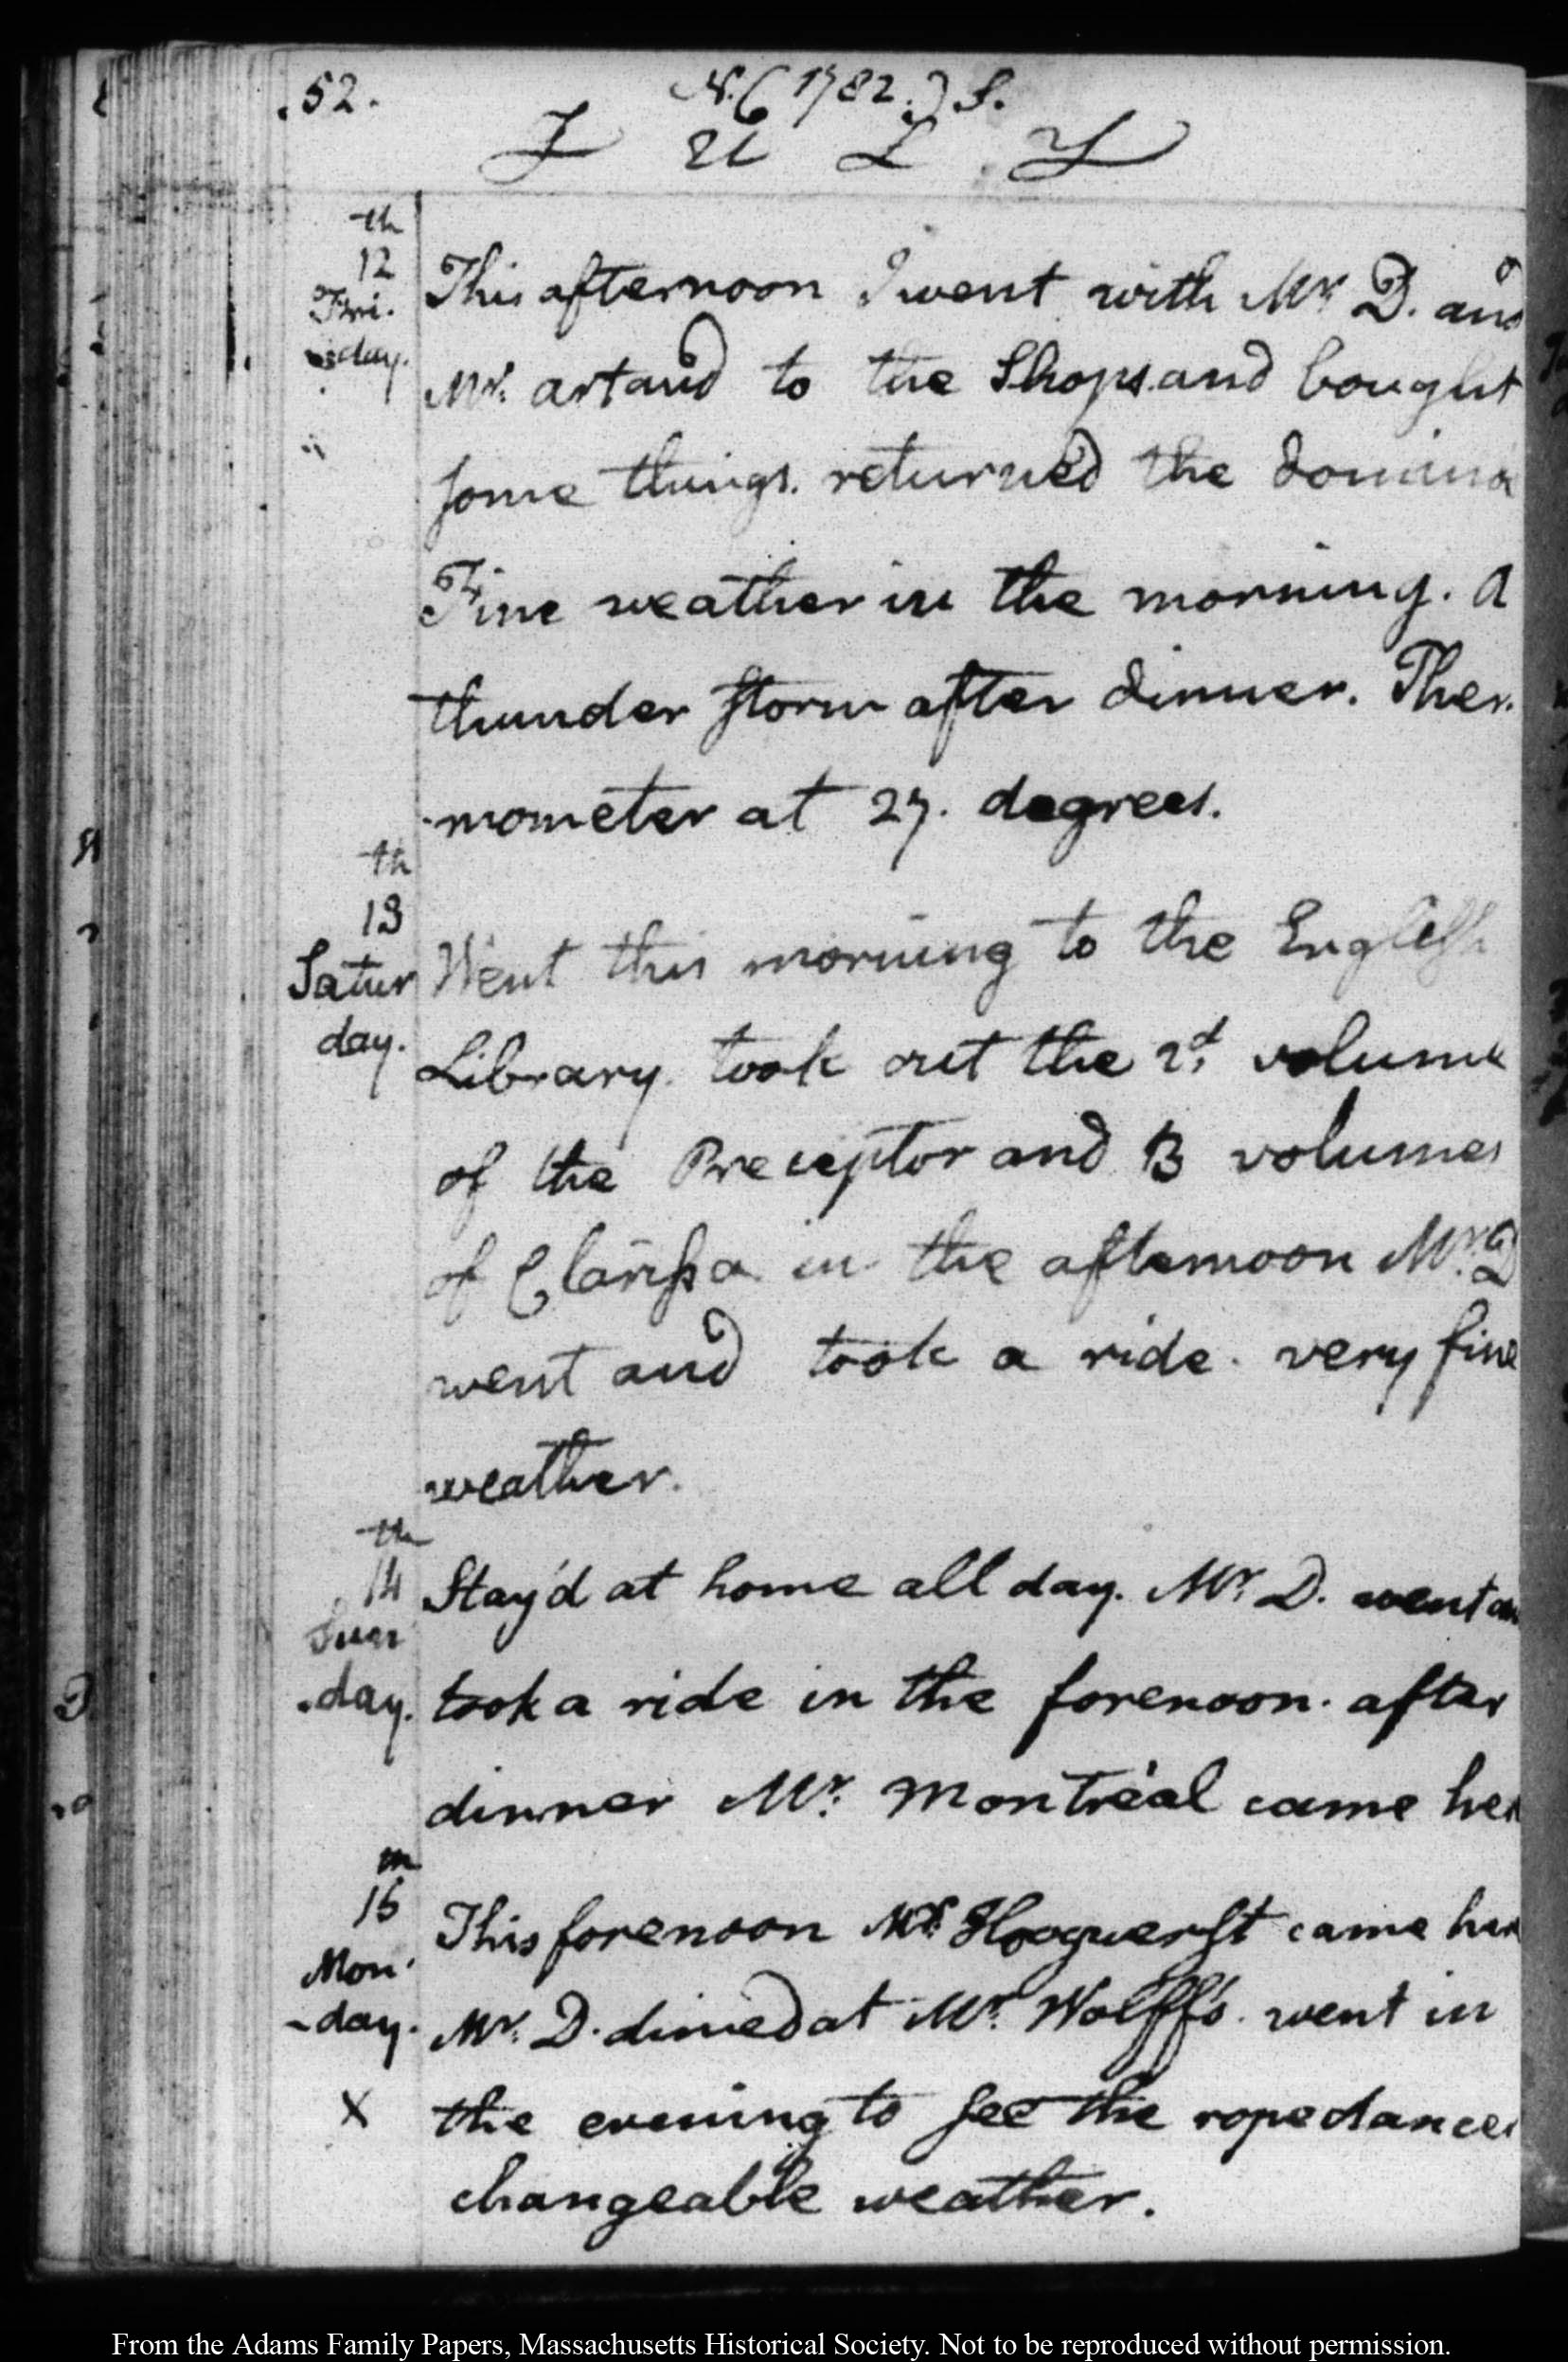 .52.
N.(1782.)S.
J U L Y
th
12
Fri.
day.
This afternoon I went with Mr. D. and
Mr. artaud to the Shops and bought
some things. returned the domino
Fine weather in the morning. A
thunder storm after dinner. Ther-
mometer at 27. degrees.
th
13
Satur
day.
Went this morning to the English
Library. took out the 2d. volume
of the Preceptor and 3 volumes
of Clarissa in the afternoon Mr. D
went and took a ride. very fine
weather.
th
14
Sun
-day.
Stay'd at home all day. Mr. D. went an
took a ride in the forenoon. after
dinner Mr. Montréal came her
th
15
Mon.
-day.
X
This forenoon Mr. Hooguerst came her
Mr. D. dined at Mr. Wolff's. went in
the evening to see the rope dancer
changeable weather.
From the Adams Family Papers, Massachusetts Historical Society. Not to be reproduced without permission.